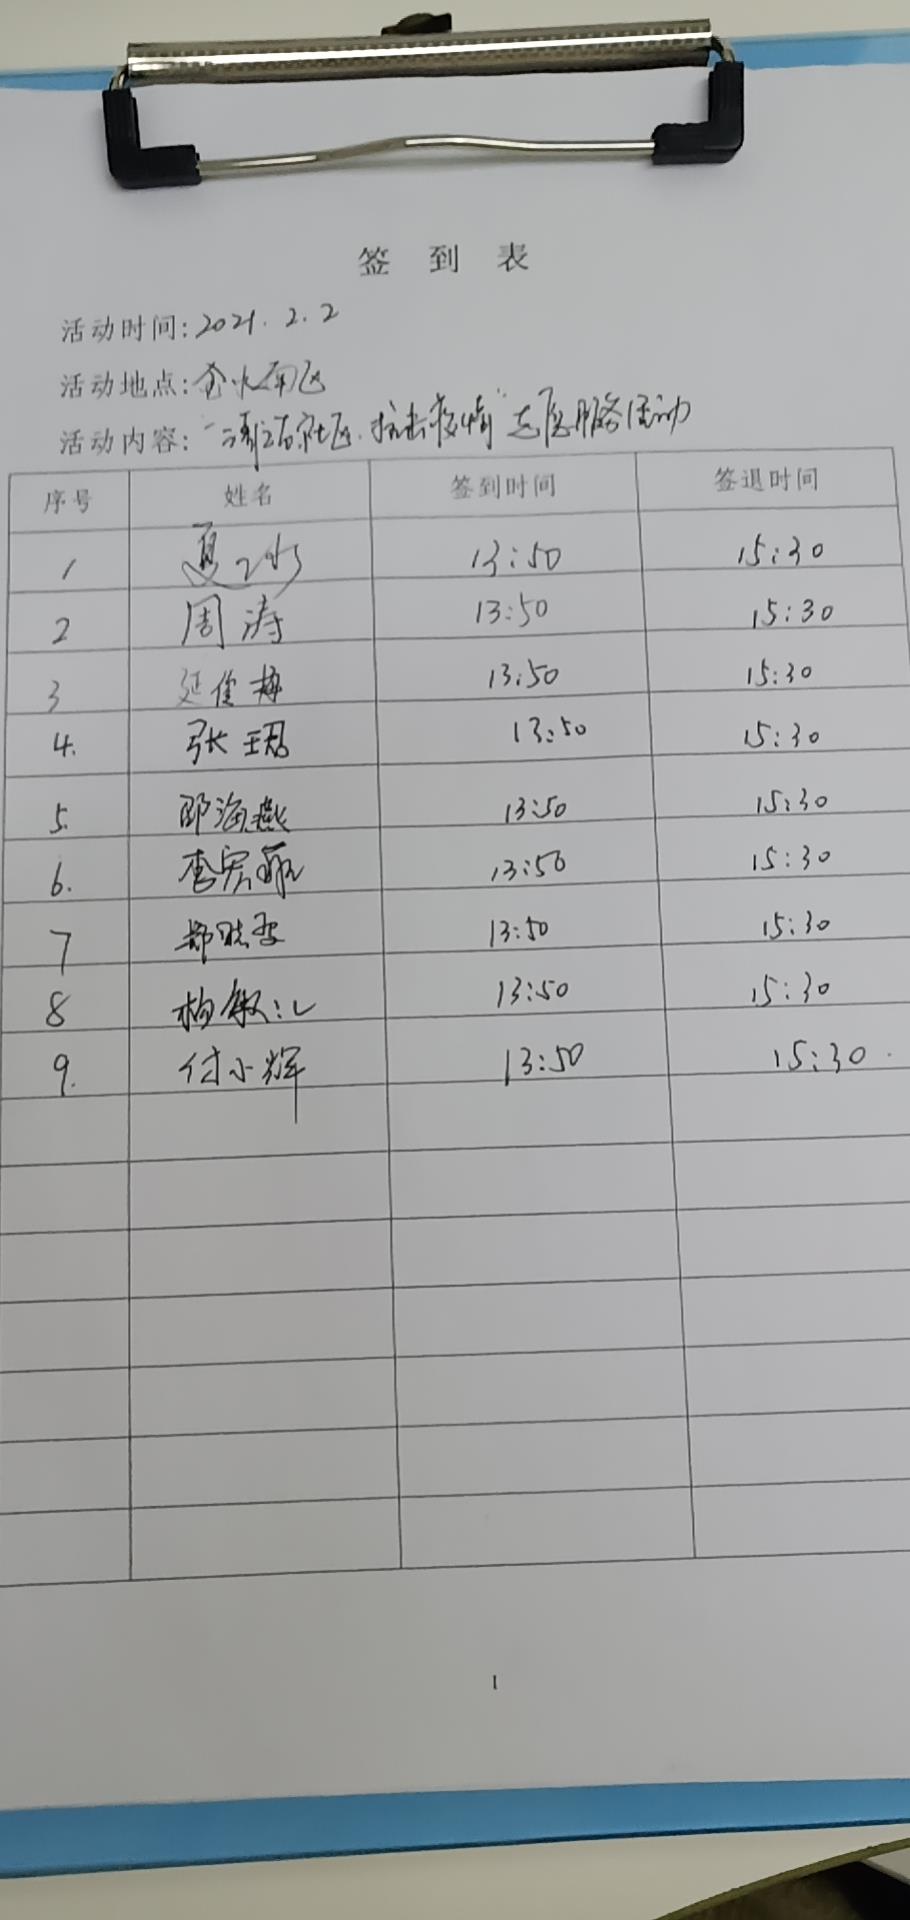 签到表
活动时间:2021.2.2
活动地点:金水南区
活动内容:“清洁社区.抗击疫情”志愿服务活动
序号 姓名 签到时间 签退时间
1 夏 13:50 15:30
2 周涛 13:50 15:30
3 延俊梅 13:50 15:30
4. 张珺 13:50 15:30
5. 邵海燕 13:50 15:30
6. 李宏 13:50 15:30
7 郑晓 13:50 15:30
8 杨敏 13:50 15:30
9. 付小辉 13:50 15:30.
1